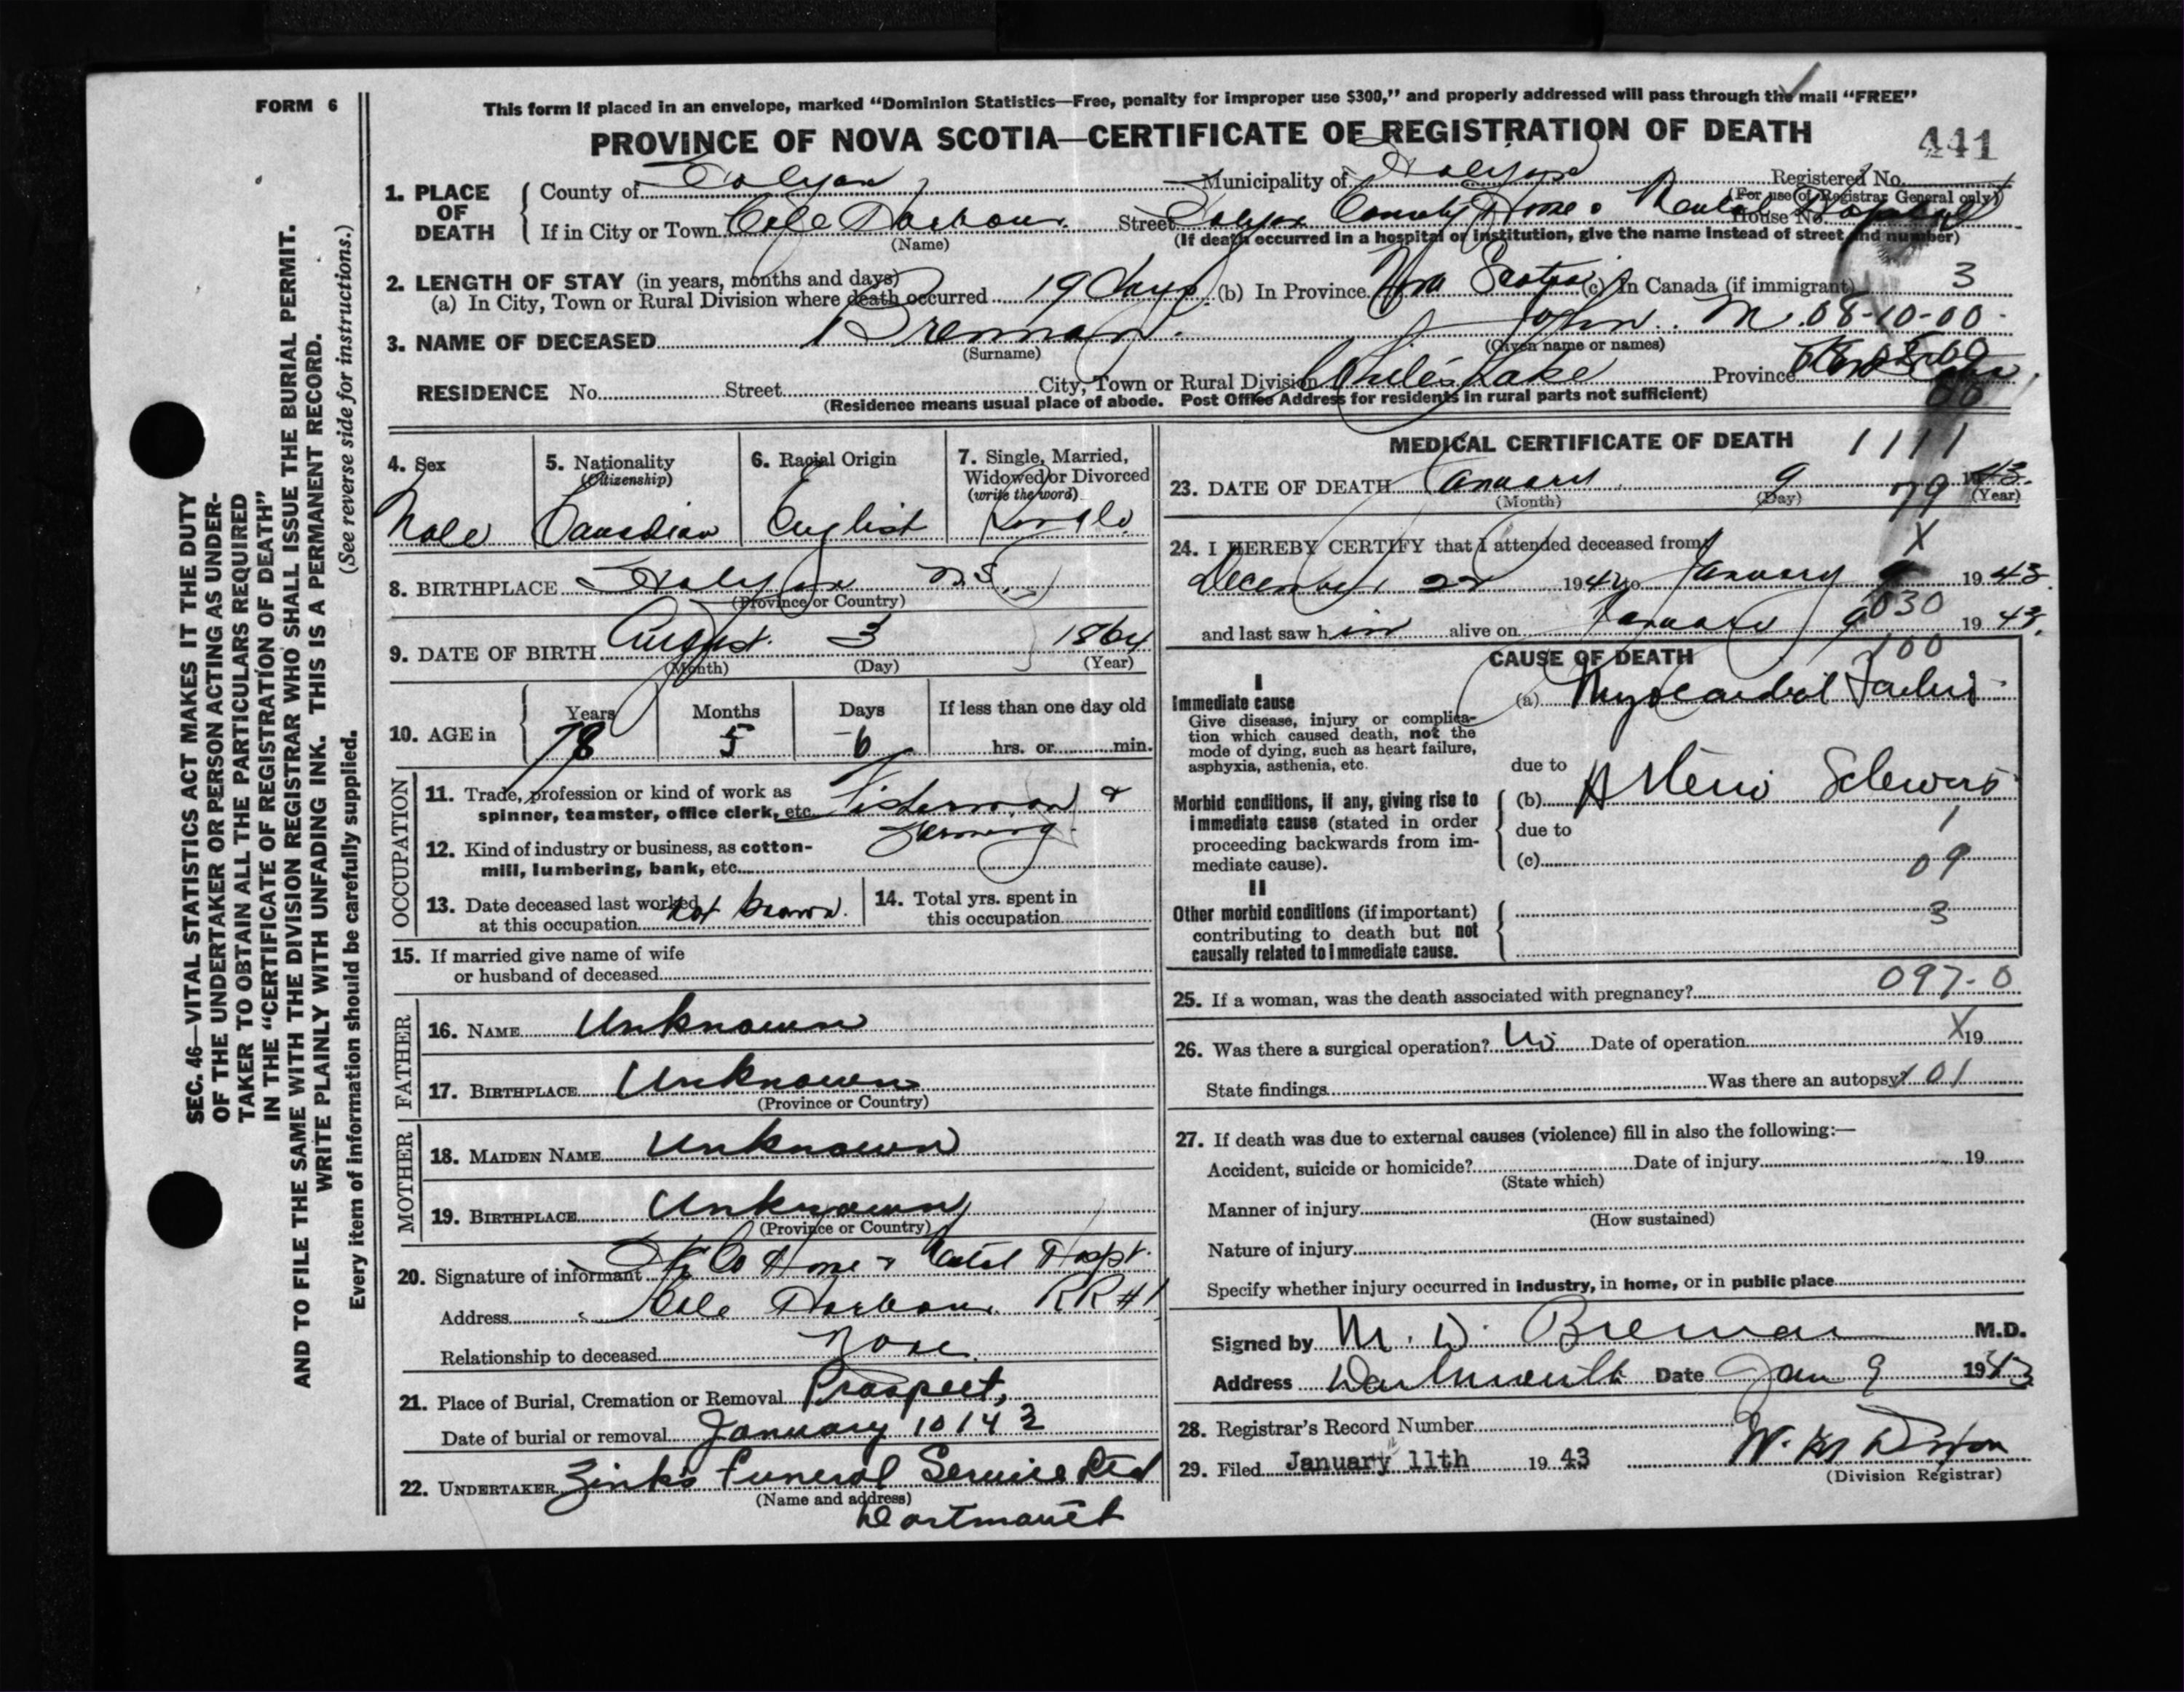 FORM 6
This form if placed in an envelope, marked “Dominion Statistics—Free, penalty for improper use $300,” and properly addressed will pass through the mail “FREE”
PROVINCE OF NOVA SCOTIA—CERTIFICATE OF REGISTRATION OF DEATH
441
1. PLACE OF DEATH
County of Halifax Municipality of Halifax Registered No.
(For use of Registrar General only)
If in City or Town Cole Harbour. Street Halifax County Home & Mental Hospital House No.
(Name) (If death occurred in a hospital or institution, give the name instead of street and number)
2. LENGTH OF STAY (in years, months and days)
(a) In City, Town or Rural Division where death occurred 19 days (b) In Province Nova Scotia (c) In Canada (if immigrant) 3
3. NAME OF DECEASED Brennan. John. M. 08-10-00-
(Surname) (Given name or names)
RESIDENCE No. Street City, Town or Rural Division Lake Province
(Residence means usual place of abode. Post Office Address for residents in rural parts not sufficient)
4. Sex
Male
5. Nationality
(Citizenship)
Canadian
6. Racial Origin
English
7. Single, Married, Widowed or Divorced
(write the word)
Single.
8. BIRTHPLACE Halifax N.S.
(Province or Country)
9. DATE OF BIRTH August 3 1864
(Month) (Day) (Year)
10. AGE in
Years Months Days If less than one day old
78 5 6 hrs. or min.
OCCUPATION
11. Trade, profession or kind of work as spinner, teamster, office clerk, etc. Fisherman &
farming.
12. Kind of industry or business, as cotton-mill, lumbering, bank, etc.
13. Date deceased last worked at this occupation not known.
14. Total yrs. spent in this occupation
15. If married give name of wife or husband of deceased
FATHER
16. NAME Unknown
17. BIRTHPLACE Unknown
(Province or Country)
MOTHER
18. MAIDEN NAME Unknown
19. BIRTHPLACE Unknown
(Province or Country)
20. Signature of informant Hfx Co Home & Mental Hospt.
Address Cole Harbour RR #1
Relationship to deceased None.
21. Place of Burial, Cremation or Removal Prospect,
Date of burial or removal January 10 1943
22. UNDERTAKER Zinks Funeral Service Ltd
(Name and address)
Dartmouth
MEDICAL CERTIFICATE OF DEATH
1111
23. DATE OF DEATH January 9 1943.
(Month) (Day) (Year)
79
X
24. I HEREBY CERTIFY that I attended deceased from
December 22 1942 to January 9 1943.
030
and last saw him alive on January 9 1943.
100
CAUSE OF DEATH
I
Immediate cause
Give disease, injury or complication which caused death, not the mode of dying, such as heart failure, asphyxia, asthenia, etc.
(a) Myocardial Failure
due to
Morbid conditions, if any, giving rise to immediate cause (stated in order proceeding backwards from immediate cause).
(b) Arterio Sclerosis
due to
1
(c)
09
II
Other morbid conditions (if important) contributing to death but not causally related to immediate cause.
3
25. If a woman, was the death associated with pregnancy? 097-0
26. Was there a surgical operation? No Date of operation X 19
State findings Was there an autopsy? 101
27. If death was due to external causes (violence) fill in also the following:—
Accident, suicide or homicide? Date of injury 19
(State which)
Manner of injury
(How sustained)
Nature of injury
Specify whether injury occurred in industry, in home, or in public place
Signed by M. D. Brennan M.D.
Address Dartmouth Date Jan 9 1943
28. Registrar's Record Number
29. Filed January 11th 1943
(Division Registrar)
SEC. 46—VITAL STATISTICS ACT MAKES IT THE DUTY
OF THE UNDERTAKER OR PERSON ACTING AS UNDER-
TAKER TO OBTAIN ALL THE PARTICULARS REQUIRED
IN THE “CERTIFICATE OF REGISTRATION OF DEATH”
AND TO FILE THE SAME WITH THE DIVISION REGISTRAR WHO SHALL ISSUE THE BURIAL PERMIT.
WRITE PLAINLY WITH UNFADING INK. THIS IS A PERMANENT RECORD.
(See reverse side for instructions.)
Every item of information should be carefully supplied.